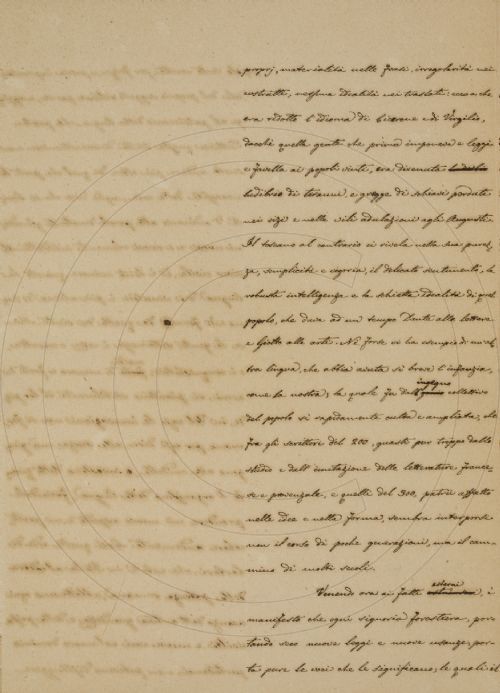 proprj, materialità nelle frasi, irregolarità nei
costrutti, nessuna idealità nei traslati: ecco a che
era ridotto l'idioma di Cicerone e di Virgilio,
dacchè quella gente che prima imponeva e leggi
e favella ai popoli vinti, era divenuta ludibrio
ludibrio di tiranni, e gregge di schiavi perduti
nei vizi e nelle vili adulazioni agli Augusti.
Il toscano al contrario ci rivela nella sua purez-
za, semplicità e vigoria, il delicato sentimento, la
robusta intelligenza e la schietta idealità di quel
popolo, che dava ad un tempo Dante alle lettere
e Giotto alle arti. Nè forse vi ha esempio di un'al-
tra lingua, che abbia avuta sì breve l'infanzia,
come la nostra; la quale fu dall' ingegno collettivo
del popolo sì rapidamente culta e ampliata, che
fra gli scrittori del 200, guasti pur troppo dallo
studio e dall'imitazione delle letterature france-
se e provenzale, e quelli del 300, patrii affatto
nelle idee e nella forma, sembra interporsi
non il corso di poche generazioni, ma il cam-
mino di molti secoli.
Venendo ora ai fatti esterni, è
manifesto che ogni signoria forestiera, por-
tando seco nuove leggi e nuove usanze, por-
ta pure le voci che le significano; le quali